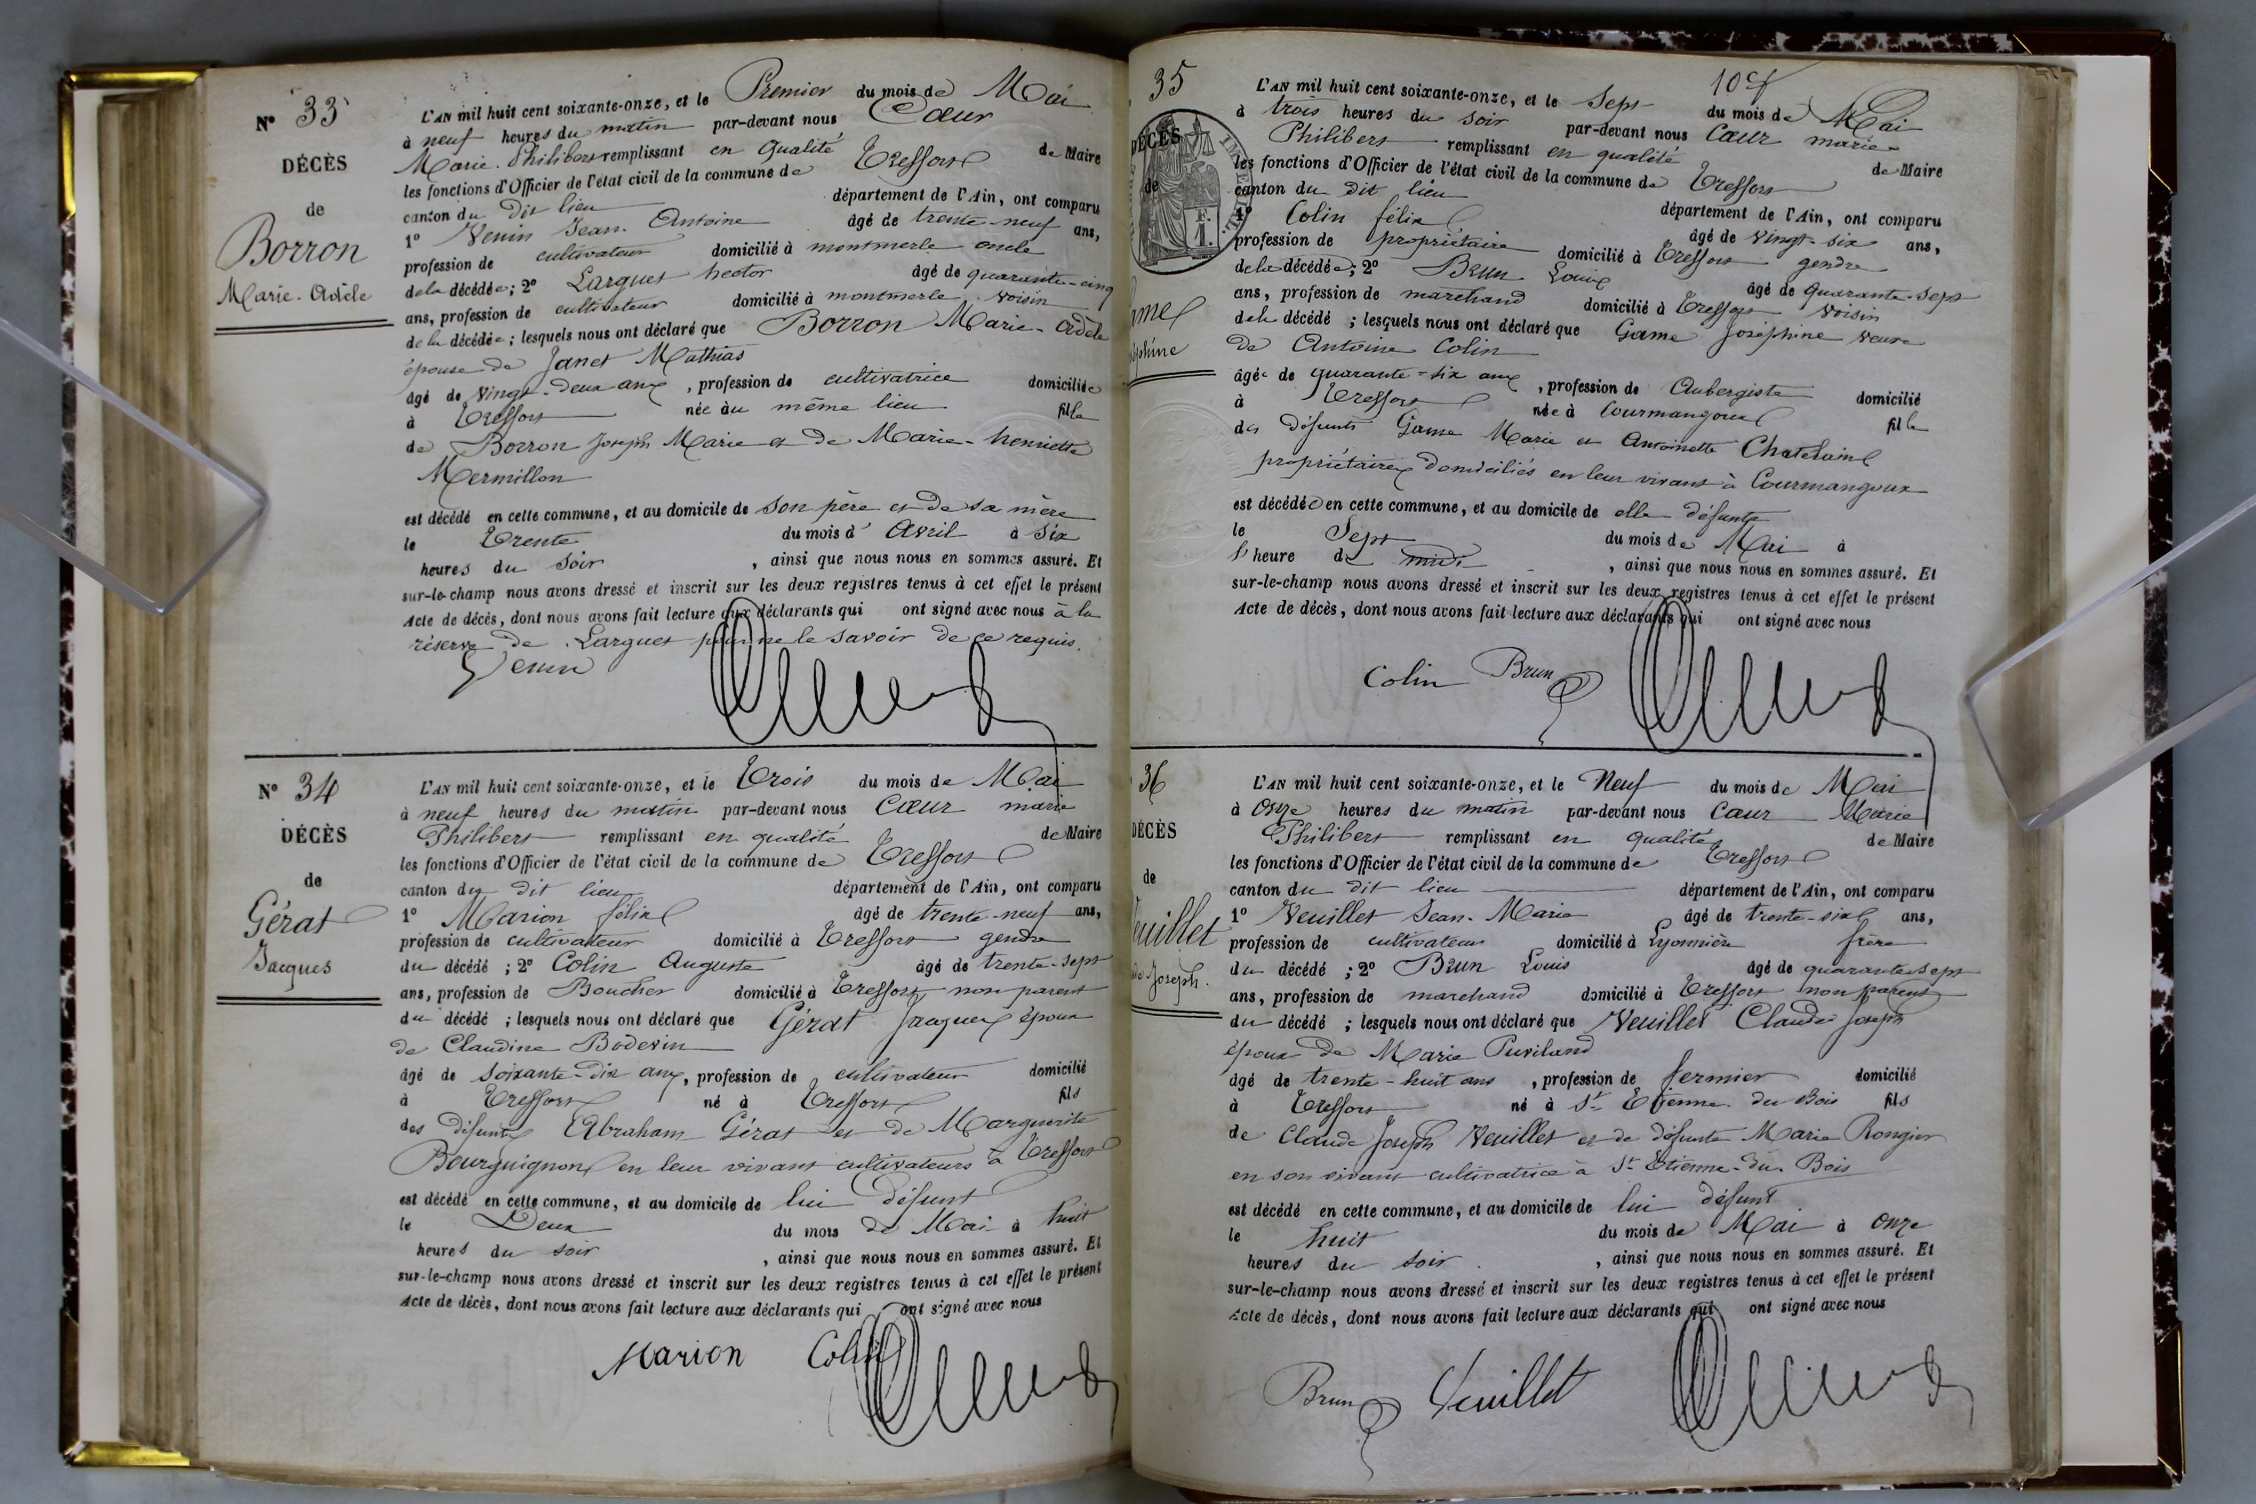 N° 33
DÉCÈS
de
Borron
Marie-Adèle
L'AN mil huit cent soixante-onze, et le Premier du mois de Mai
à neuf heures du matin par-devant nous Cœur
Marie-Philibert remplissant en qualité de Maire
les fonctions d'Officier de l'état civil de la commune de Treffort
canton du dit lieu département de l'Ain, ont comparu
1° Venin Jean-Antoine âgé de trente-neuf ans,
profession de cultivateur domicilié à montmerle oncle
de la décédée; 2° Larguet hector âgé de quarante-cinq
ans, profession de cultivateur domicilié à montmerle voisin
de la décédée; lesquels nous ont déclaré que Borron Marie-Adèle
épouse de Janet Mathias
âgé de vingt-deux ans, profession de cultivatrice domiciliée
à Treffort née au même lieu fille
de Borron Joseph Marie et de Marie-henriette
Mermillon
est décédé en cette commune, et au domicile de son père et de sa mère
le Trente du mois d'Avril à six
heures du soir, ainsi que nous nous en sommes assuré. Et
sur-le-champ nous avons dressé et inscrit sur les deux registres tenus à cet effet le présent
Acte de décès, dont nous avons fait lecture aux déclarants qui ont signé avec nous à la
réserve de Larguet pour ne le savoir de ce requis.
Venin
N° 34
DÉCÈS
de
Gérat
Jacques
L'AN mil huit cent soixante-onze, et le Trois du mois de Mai
à neuf heures du matin par-devant nous Cœur marie
Philibert remplissant en qualité de Maire
les fonctions d'Officier de l'état civil de la commune de Treffort
canton du dit lieu département de l'Ain, ont comparu
1° Marion félix âgé de trente-neuf ans,
profession de cultivateur domicilié à Treffort gendre
du décédé; 2° Colin Auguste âgé de trente-sept
ans, profession de Boucher domicilié à Treffort non parent
du décédé; lesquels nous ont déclaré que Gérat Jacques époux
de Claudine Bodevin
âgé de soixante-dix ans, profession de cultivateur domicilié
à Treffort né à Treffort fils
des défunts Abraham Gérat et de Marguerite
Bourguignon en leur vivant cultivateurs à Treffort
est décédé en cette commune, et au domicile de lui défunt
le Deux du mois de Mai à huit
heures du soir, ainsi que nous nous en sommes assuré. Et
sur-le-champ nous avons dressé et inscrit sur les deux registres tenus à cet effet le présent
Acte de décès, dont nous avons fait lecture aux déclarants qui ont signé avec nous
Marion Colin
35
DÉCÈS
de
L'AN mil huit cent soixante-onze, et le Sept du mois de Mai
à trois heures du soir par-devant nous Cœur marie
Philibert remplissant en qualité de Maire
les fonctions d'Officier de l'état civil de la commune de Treffort
canton du dit lieu département de l'Ain, ont comparu
1° Colin félix âgé de vingt-six ans,
profession de propriétaire domicilié à Treffort gendre
de la décédée; 2° Brun Louis âgé de quarante-sept
ans, profession de marchand domicilié à Treffort voisin
de la décédé; lesquels nous ont déclaré que Game Joséphine veuve
de Antoine Colin
âgée de quarante-six ans, profession de Aubergiste domicilié
à Treffort née à Courmangoux fille
des défunts Game Marie et Antoinette Chatelain
propriétaires domiciliés en leur vivant à Courmangoux
est décédée en cette commune, et au domicile de elle défunte
le Sept du mois de Mai à
l'heure de midi, ainsi que nous nous en sommes assuré. Et
sur-le-champ nous avons dressé et inscrit sur les deux registres tenus à cet effet le présent
Acte de décès, dont nous avons fait lecture aux déclarants qui ont signé avec nous
Colin Brun
36
DÉCÈS
de
L'AN mil huit cent soixante-onze, et le Neuf du mois de Mai
à Onze heures du matin par-devant nous Cœur Marie
Philibert remplissant en qualité de Maire
les fonctions d'Officier de l'état civil de la commune de Treffort
canton du dit lieu département de l'Ain, ont comparu
1° Veuillet Jean-Marie âgé de trente-six ans,
profession de cultivateur domicilié à Lyonnière frère
du décédé; 2° Brun Louis âgé de quarante sept
ans, profession de marchand domicilié à Treffort non parent
du décédé; lesquels nous ont déclaré que Veuillet Claude Joseph
époux de Marie Puviland
âgé de trente-huit ans, profession de fermier domicilié
à Treffort né à St Etienne du Bois fils
de Claude Joseph Veuillet et de défunte Marie Rongier
en son vivant cultivatrice à St Etienne-du-Bois
est décédé en cette commune, et au domicile de lui défunt
le huit du mois de Mai à onze
heures du soir, ainsi que nous nous en sommes assuré. Et
sur-le-champ nous avons dressé et inscrit sur les deux registres tenus à cet effet le présent
Acte de décès, dont nous avons fait lecture aux déclarants qui ont signé avec nous
Brun Veuillet